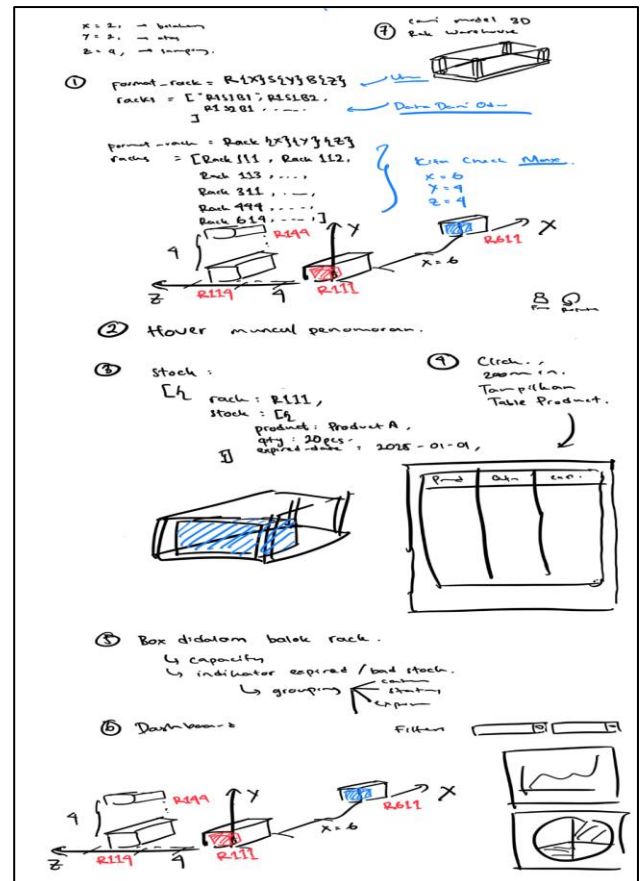 x = 2, → belakang
y = 2, → atas
z = 4, → samping.
⑦ cari model 3D
Rak Warehouse
① format_rack = R{X}S{Y}B{Z}
racks = ["R1S1B1", R1S1B2,
R1S2B1, .....
]
Data Dari Odoo
format_rack = Rack {X}{Y}{Z}
racks = [Rack 111, Rack 112,
Rack 113, ....,
Rack 311, ....,
Rack 444, ....,
Rack 614, ....,]
Kita Check Max.
x = 6
y = 4
z = 4
R144
Y
X
R611
4
x = 6
Z
R114
4
R111
② Hover muncul penomoran.
③ Stock :
[{
rack : R111,
stock : [{
product : Product A,
qty : 20 pcs.
expired-date : 2025-01-01,
}]
④ Click.,
zoom in.
Tampilkan
Table Product.
Prod
⑤ Box didalam balok rack.
↳ capacity
↳ indikator expired / bad stock.
↳ grouping
⑥ Dashboard
Filter
R144
Y
X
R611
4
x = 6
Z
R114
4
R111